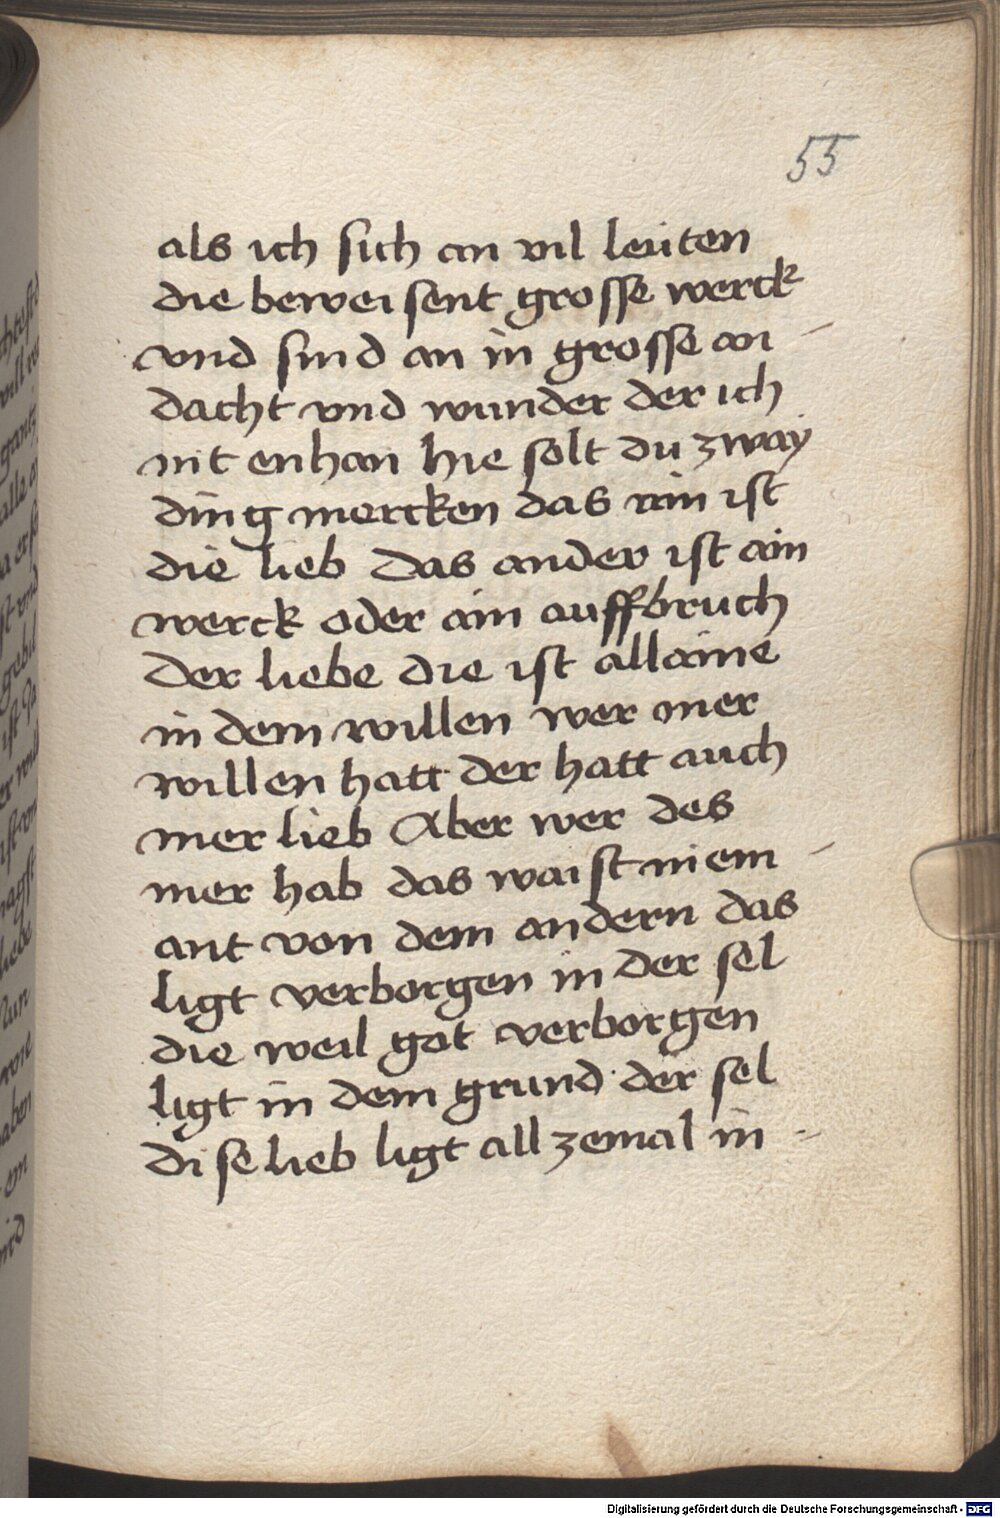 55
als ich sich an vil leuten
die beweisent grosse werck
vnd sind an in grosse an-
dacht vnd wunder der ich
nit enhan hie solt du zway
ding mercken das ain ist
die lieb das ander ist ain
werck oder ain auffbruch
der liebe die ist allaine
in dem willen wer mer
willen hatt der hatt auch
mer lieb Aber wer des
mer hab das waist niem-
ant von dem andern das
ligt verborgen in der sel
die weil got verborgen
ligt in dem grund der sel
dise lieb ligt all zemal in -
Digitalisierung gefördert durch die Deutsche Forschungsgemeinschaft - DFG